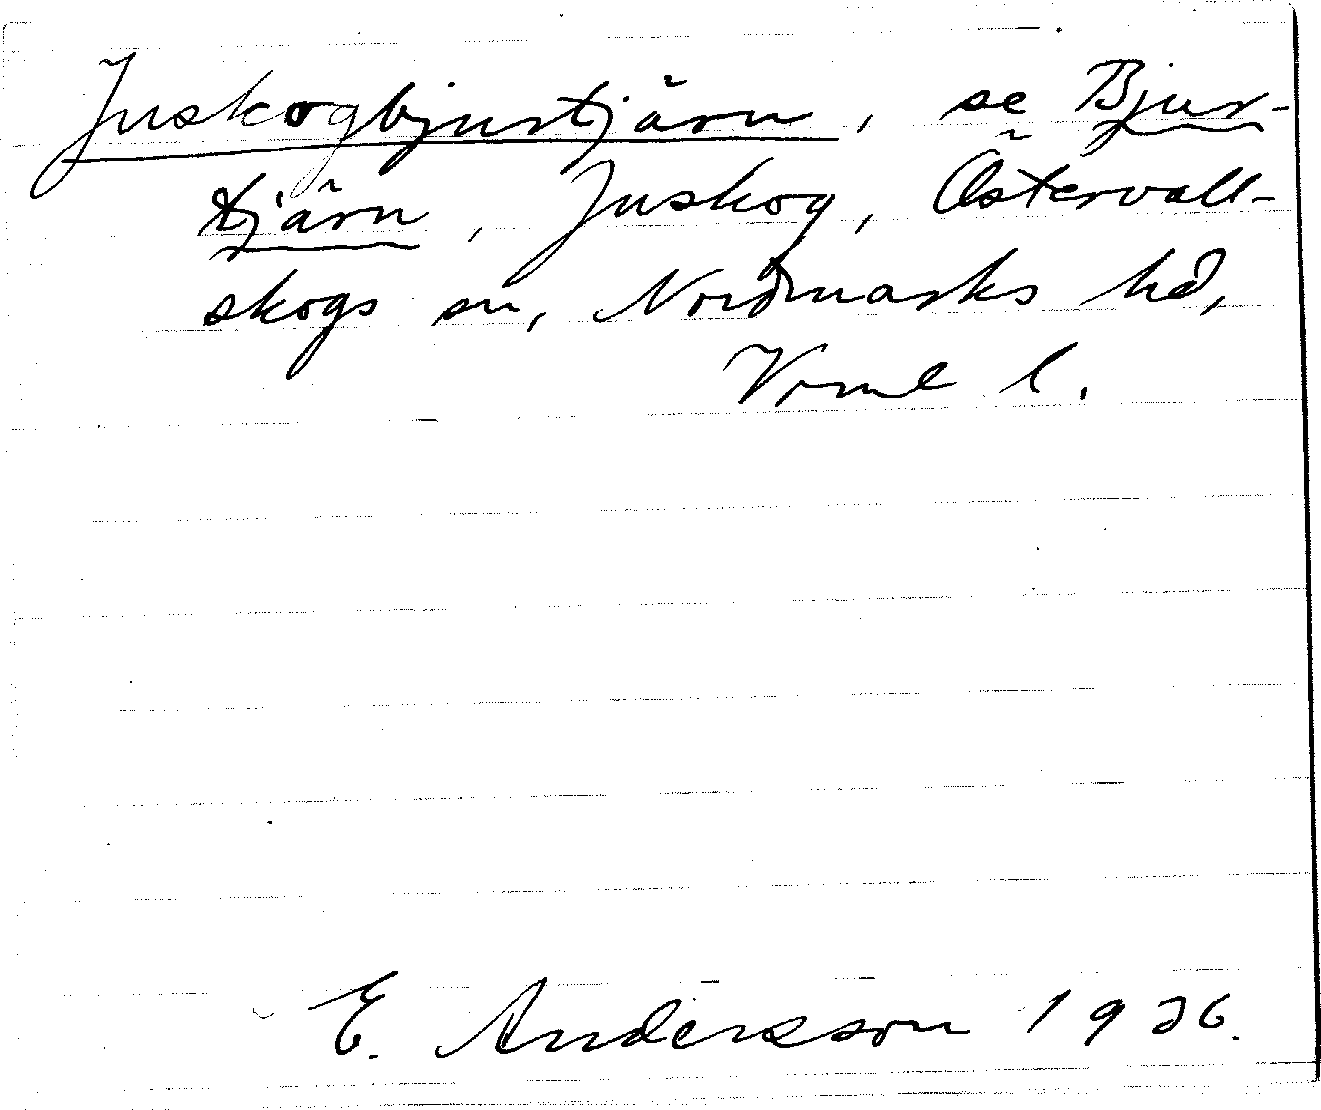 Juskogbjurtjärn, se Bjur-
tjärn, Juskog, Östervall-
skogs sn, Nordmarks hd,
Vrml l.
E. Andersson 1936.